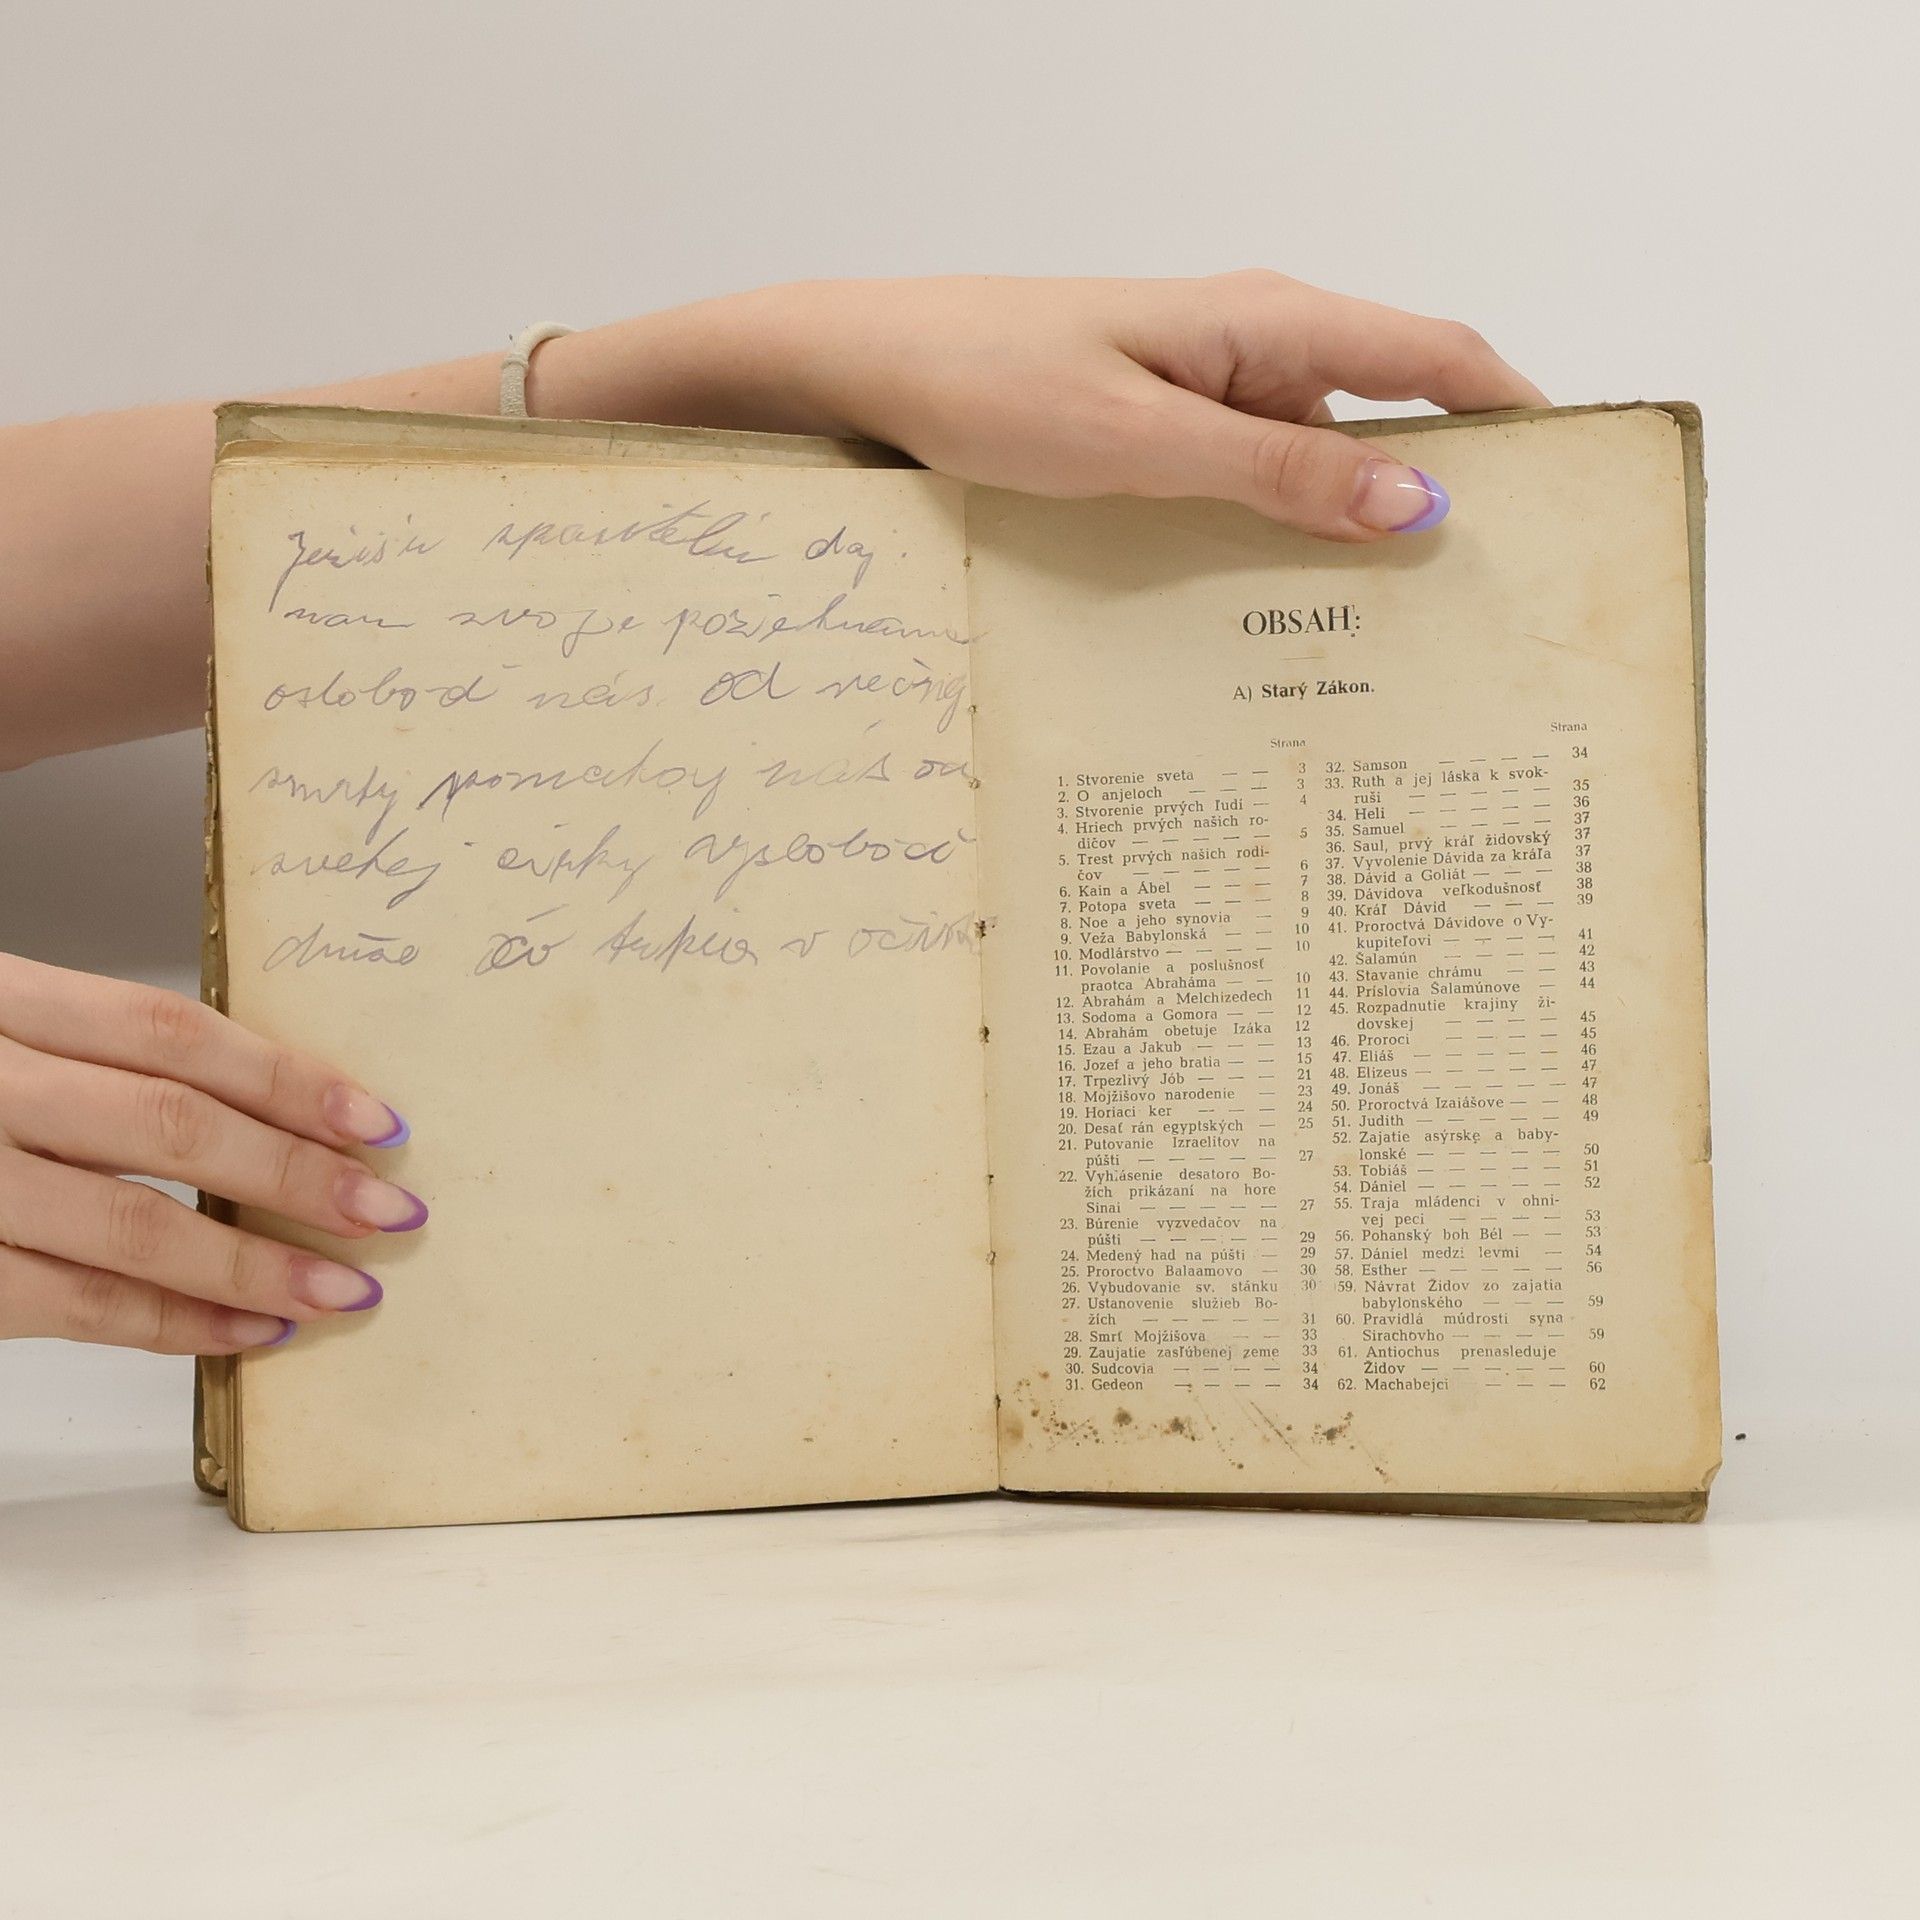 Ježišu spasitelu daj.
nam svoje požehnanie
osloboď nás od večnej
smrty pomahaj nás od
svetej cirky vysloboď
duše čo trpia v očistc
OBSAH:
A) Starý Zákon.
Strana
1. Stvorenie sveta — — 3
2. O anjeloch — — — 3
3. Stvorenie prvých ľudí — 4
4. Hriech prvých našich ro-
dičov — — — — — 5
5. Trest prvých našich rodi-
čov — — — — — 6
6. Kain a Ábel — — — 7
7. Potopa sveta — — — 8
8. Noe a jeho synovia — 9
9. Veža Babylonská — — 10
10. Modlárstvo — — — — 10
11. Povolanie a poslušnosť
praotca Abraháma — — 10
12. Abrahám a Melchizedech 11
13. Sodoma a Gomora — — 12
14. Abrahám obetuje Izáka 12
15. Ezau a Jakub — — — 13
16. Jozef a jeho bratia — — 15
17. Trpezlivý Jób — — — 21
18. Mojžišovo narodenie — 23
19. Horiaci ker — — — 24
20. Desať rán egyptských — 25
21. Putovanie Izraelitov na
púšti — — — — — 27
22. Vyhlásenie desatoro Bo-
žích prikázaní na hore
Sinai — — — — — 27
23. Búrenie vyzvedačov na
púšti — — — — — 29
24. Medený had na púšti — 29
25. Proroctvo Balaamovo — 30
26. Vybudovanie sv. stánku 30
27. Ustanovenie služieb Bo-
žích — — — — — 31
28. Smrť Mojžišova — — 33
29. Zaujatie zasľúbenej zeme 33
30. Sudcovia — — — — 34
31. Gedeon — — — — 34
Strana
32. Samson — — — — 34
33. Ruth a jej láska k svok-
ruši — — — — — 35
34. Heli — — — — — 36
35. Samuel — — — — 37
36. Saul, prvý kráľ židovský 37
37. Vyvolenie Dávida za kráľa 37
38. Dávid a Goliát — — — 38
39. Dávidova veľkodušnosť 38
40. Kráľ Dávid — — — 39
41. Proroctvá Dávidove o Vy-
kupiteľovi — — — — 41
42. Šalamún — — — — 42
43. Stavanie chrámu — — 43
44. Príslovia Šalamúnove — 44
45. Rozpadnutie krajiny ži-
dovskej — — — — 45
46. Proroci — — — — 45
47. Eliáš — — — — — 46
48. Elizeus — — — — — 47
49. Jonáš — — — — — 47
50. Proroctvá Izaiášove — — 48
51. Judith — — — — — 49
52. Zajatie asýrske a baby-
lonské — — — — — 50
53. Tobiáš — — — — — 51
54. Dániel — — — — — 52
55. Traja mládenci v ohni-
vej peci — — — — 53
56. Pohanský boh Bél — — 53
57. Dániel medzi levmi — 54
58. Esther — — — — — 56
59. Návrat Židov zo zajatia
babylonského — — — 59
60. Pravidlá múdrosti syna
Sirachovho — — — — 59
61. Antiochus prenasleduje
Židov — — — — — 60
62. Machabejci — — — 62